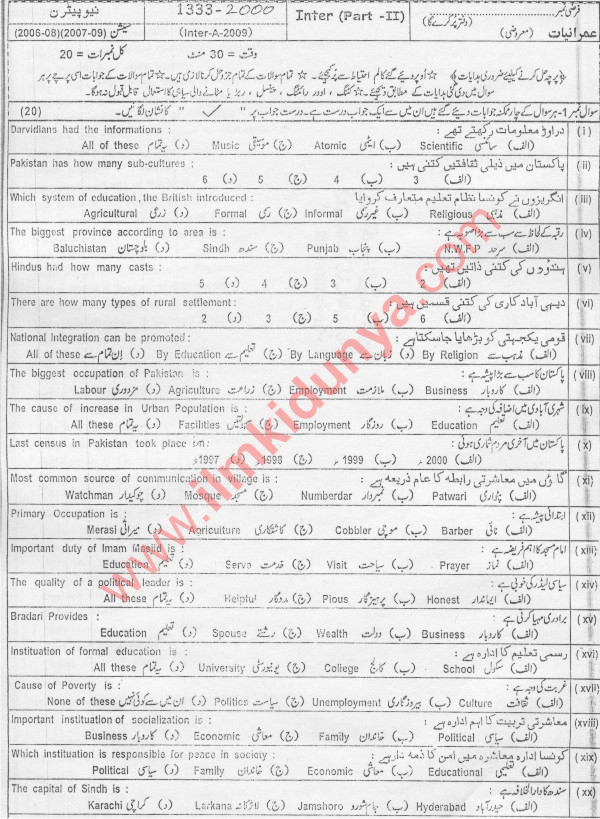 نیوپیٹرن 1333-2000 Inter (Part -II) فرضی نمبر (دفتر پُر کرے گا)
(2006-08)(2007-09) سیشن (Inter-A-2009) (معروضی) عمرانیات
کل نمبرات = 20 وقت = 30 منٹ
سوال نمبر 1- ہر سوال کے چار ممکنہ جوابات دیئے گئے ہیں ان میں سے ایک جواب درست ہے۔ درست جواب پر " ✓ " کا نشان لگائیں۔ (20)
(i) دراوڑ معلومات رکھتے تھے: Darvidians had the informations :
(الف) سائنسی Scientific (ب) ایٹمی Atomic (ج) موسیقی Music (د) یہ تمام All of these
(ii) پاکستان میں ذیلی ثقافتیں کتنی ہیں: Pakistan has how many sub-cultures :
(الف) 3 (ب) 4 (ج) 5 (د) 6
(iii) انگریزوں نے کونسا نظام تعلیم متعارف کروایا Which system of education, the British introduced :
(الف) مذہبی Religious (ب) غیر رسمی Informal (ج) رسمی Formal (د) زرعی Agricultural
(iv) رقبہ کے لحاظ سے سب سے بڑا صوبہ ہے: The biggest province according to area is :
(الف) سرحد N.W.F.P (ب) پنجاب Punjab (ج) سندھ Sindh (د) بلوچستان Baluchistan
(v) ہندوؤں کی کتنی ذاتیں تھیں: Hindus had how many casts :
(الف) 2 (ب) 3 (ج) 4 (د) 5
(vi) دیہی آباد کاری کی کتنی قسمیں ہیں: There are how many types of rural settlement :
(الف) 6 (ب) 5 (ج) 3 (د) 2
(vii) قومی یکجہتی کو بڑھایا جاسکتا ہے: National Integration can be promoted :
(الف) مذہب سے By Religion (ب) زبان سے By Language (ج) تعلیم سے By Education (د) ان تمام سے All of these
(viii) پاکستان کا سب سے بڑا پیشہ ہے: The biggest occupation of Pakistan is :
(الف) کاروبار Business (ب) ملازمت Employment (ج) زراعت Agriculture (د) مزدوری Labour
(ix) شہری آبادی میں اضافہ کی وجہ ہے: The cause of increase in Urban Population is :
(الف) تعلیم Education (ب) روزگار Employment (ج) سہولتیں Facilities (د) یہ تمام All these
(x) پاکستان میں آخری مردم شماری ہوئی: Last census in Pakistan took place in:
(الف) 2000ء (ب) 1999ء (ج) 1998ء (د) 1997ء
(xi) گاؤں میں معاشرتی رابطہ کا عام ذریعہ ہے: Most common source of communication in village is :
(الف) پٹواری Patwari (ب) نمبردار Numberdar (ج) مسجد Mosque (د) چوکیدار Watchman
(xii) ابتدائی پیشہ ہے: Primary Occupation is :
(الف) نائی Barber (ب) موچی Cobbler (ج) کاشتکاری Agriculture (د) میراثی Merasi
(xiii) امام مسجد کا اہم فریضہ ہے: Important duty of Imam Masjid is :
(الف) نماز Prayer (ب) سیاحت Visit (ج) خدمت Serve (د) تعلیم Education
(xiv) سیاسی لیڈر کی خوبی ہے: The quality of a political leader is :
(الف) ایماندار Honest (ب) پرہیزگار Pious (ج) مددگار Helpful (د) یہ تمام All these
(xv) برادری مہیا کرتی ہے: Bradari Provides :
(الف) کاروبار Business (ب) دولت Wealth (ج) رشتے Spouse (د) تعلیم Education
(xvi) رسمی تعلیم کا ادارہ ہے: Institution of formal education is :
(الف) سکول School (ب) کالج College (ج) یونیورسٹی University (د) یہ تمام All these
(xvii) غربت کی وجہ ہے: Cause of Poverty is :
(الف) ثقافت Culture (ب) بیروزگاری Unemployment (ج) سیاست Politics (د) ان میں سے کوئی نہیں None of these
(xviii) معاشرتی تربیت کا اہم ادارہ ہے: Important instituation of socialization is :
(الف) سیاسی Political (ب) خاندان Family (ج) معاشی Economic (د) کاروبار Business
(xix) کونسا ادارہ معاشرہ میں امن کا ذمہ دار ہے: Which institution is responsible for peace in society :
(الف) تعلیمی Educational (ب) معاشی Economic (ج) خاندان Family (د) سیاسی Political
(xx) سندھ کا دارالخلافہ ہے: The capital of Sindh is :
(الف) حیدرآباد Hyderabad (ب) جام شورو Jamshoro (ج) لاڑکانہ Larkana (د) کراچی Karachi
www.ilmkidunya.com